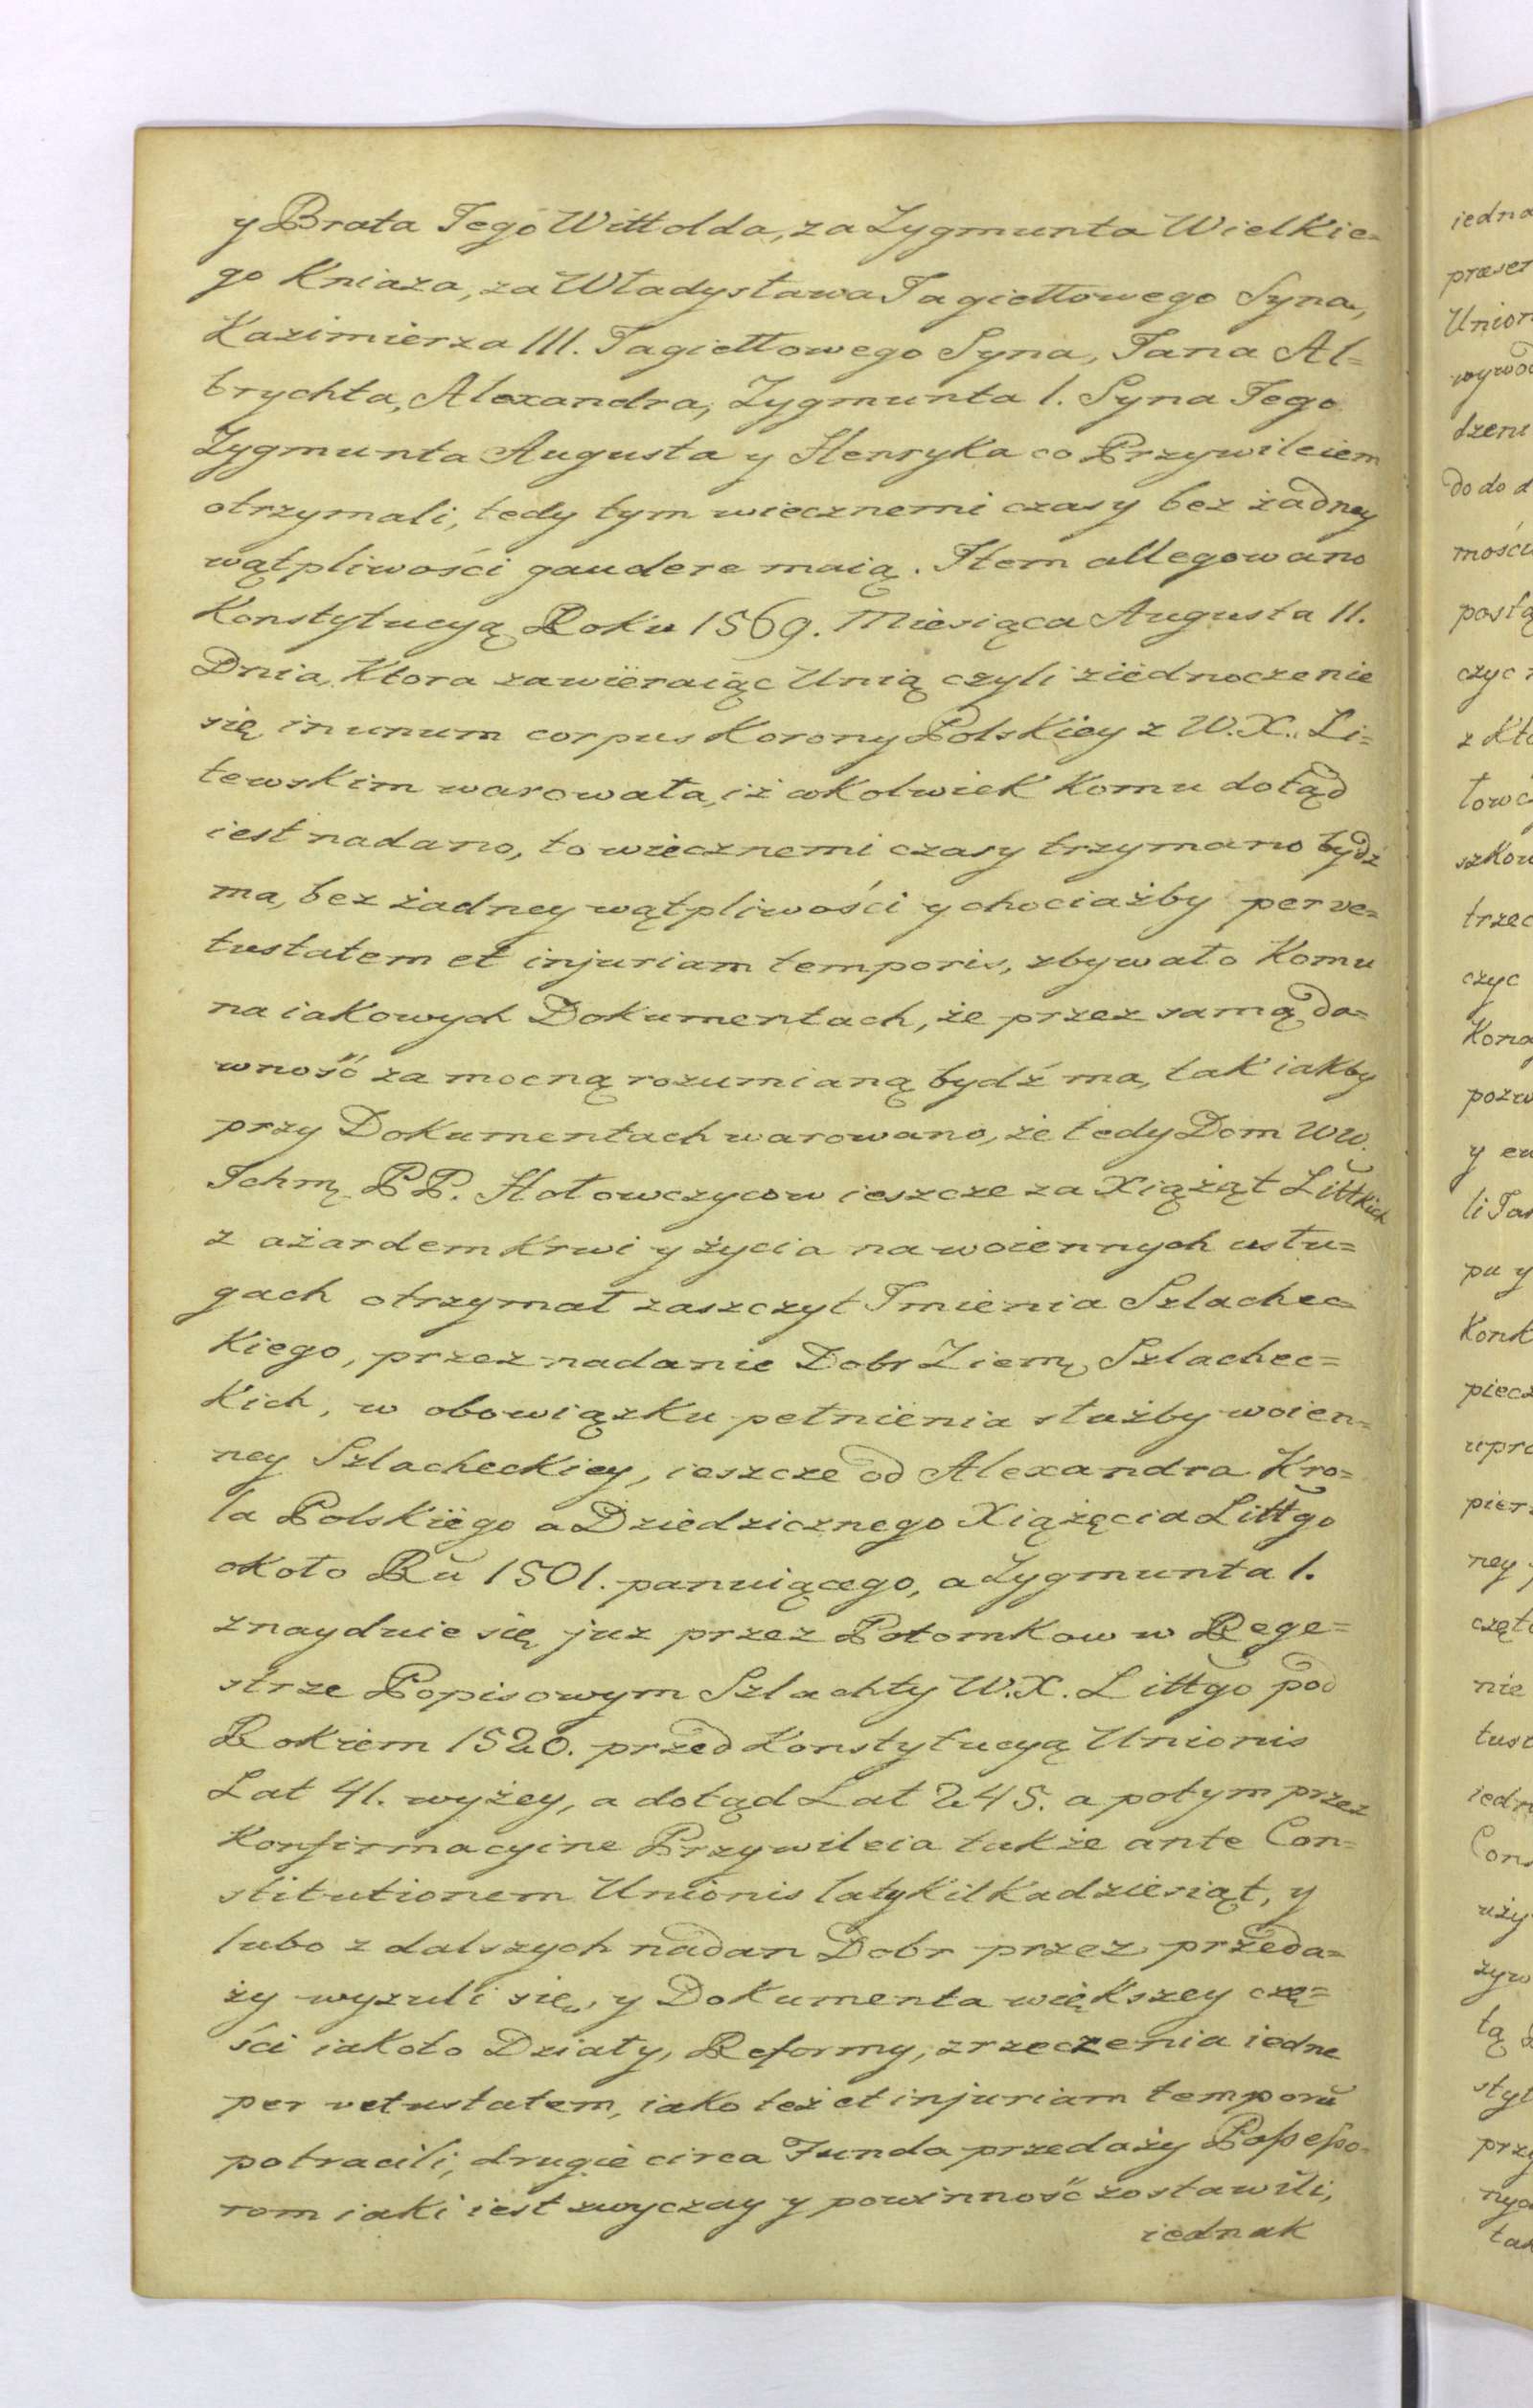 y Brata Jego Wittolda, za Zygmunta Wielkie=
go Kniaza, za Władysława Jagiełłowego Syna,
Kazimierza III. Jagiełłowego Syna, Jana Al=
brychta, Alexandra, Zygmunta I. Syna Jego
Zygmunta Augusta y Henryka co Przywileiem
otrzymali, tedy tym wiecznemi czasy bez żadney
wątpliwości gaudere maią. Item allegowano
Konstytucyą Roku 1569. Miesiąca Augusta 11.
Dnia, Ktora zawieraiąc Unią czyli ziednoczenie
się in unum corpus Korony Polskiey z W.X. Li=
tewskim warowała, iż cokolwiek Komu dotąd
iest nadano, to wiecznemi czasy trzymano bydź
ma, bez żadney wątpliwości y chociażby per ve=
tustatem et injuriam temporis, zbywało Komu
na iakowych Dokumentach, że przez samą da=
wność za mocną rozumianą bydź ma, tak iakby
przy Dokumentach warowano, że tedy Dom WW.
Ichmę PP. Hołowczycow ieszcze za Xiążąt Littkich
z ażardem Krwi y życia na woiennych usłu=
gach otrzymał zaszczyt Imienia Szlachec=
Kiego, przez nadanie Dobr Ziemę Szlachec=
Kich, w obowiązku pełnienia służby woien=
ney Szlacheckiey, ieszcze od Alexandra Kro=
la Polskiego a Dziedzicznego Xiążęcia Littgo
około Ru 1501. panuiącego, a Zygmunta I.
znayduie się juz przez Potomkow w Rege=
strze Popisowym Szlachty W.X. Littgo pod
Rokiem 1528. przed Konstytucyą Unionis
Lat 41. wyżey, a dotąd Lat 245. a potym przez
Konfirmacyine Przywileia także ante Con=
stitutionem Unionis laty Kilkadziesiąt, y
lubo z dalszych nadan Dobr przez przeda=
ży wyzuli się, y Dokumenta większey czę=
ści iakoto Działy, Reformy, zrzeczenia iedne
per vetustatem, iako też et injuriam temporu
potracili, drugie circa Funda przedaży Possesso=
rom iaki iest zwyczay y powinność zostawili,
iednak